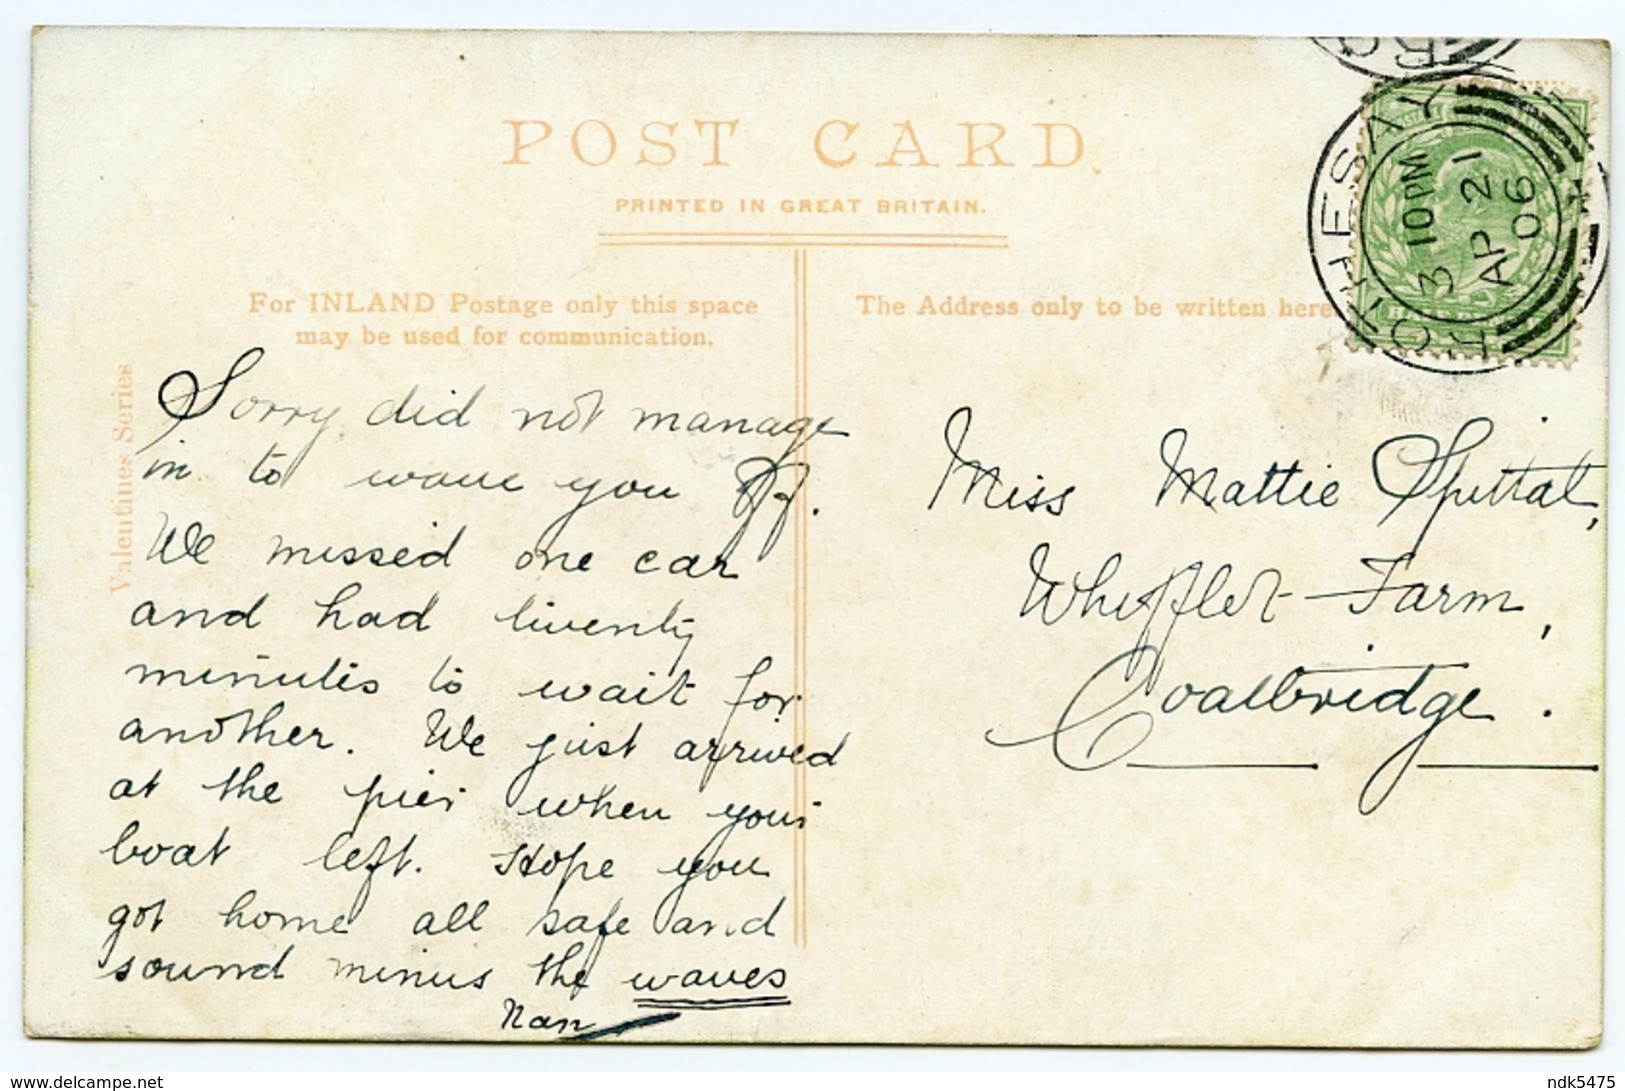 POST CARD
PRINTED IN GREAT BRITAIN.
For INLAND Postage only this space
may be used for communication.
The Address only to be written here.
Valentines Series
ROTHESAY
3 10PM
AP 21
06
Sorry did not manage
in to wave you off.
We missed one car
and had twenty
minutes to wait for
another. We just arrived
at the pier when your
boat left. Hope you
got home all safe and
sound minus the waves
Nan
Miss Mattie Spittal,
Whifflet Farm,
Coatbridge.
delcampe.net
ndk5475